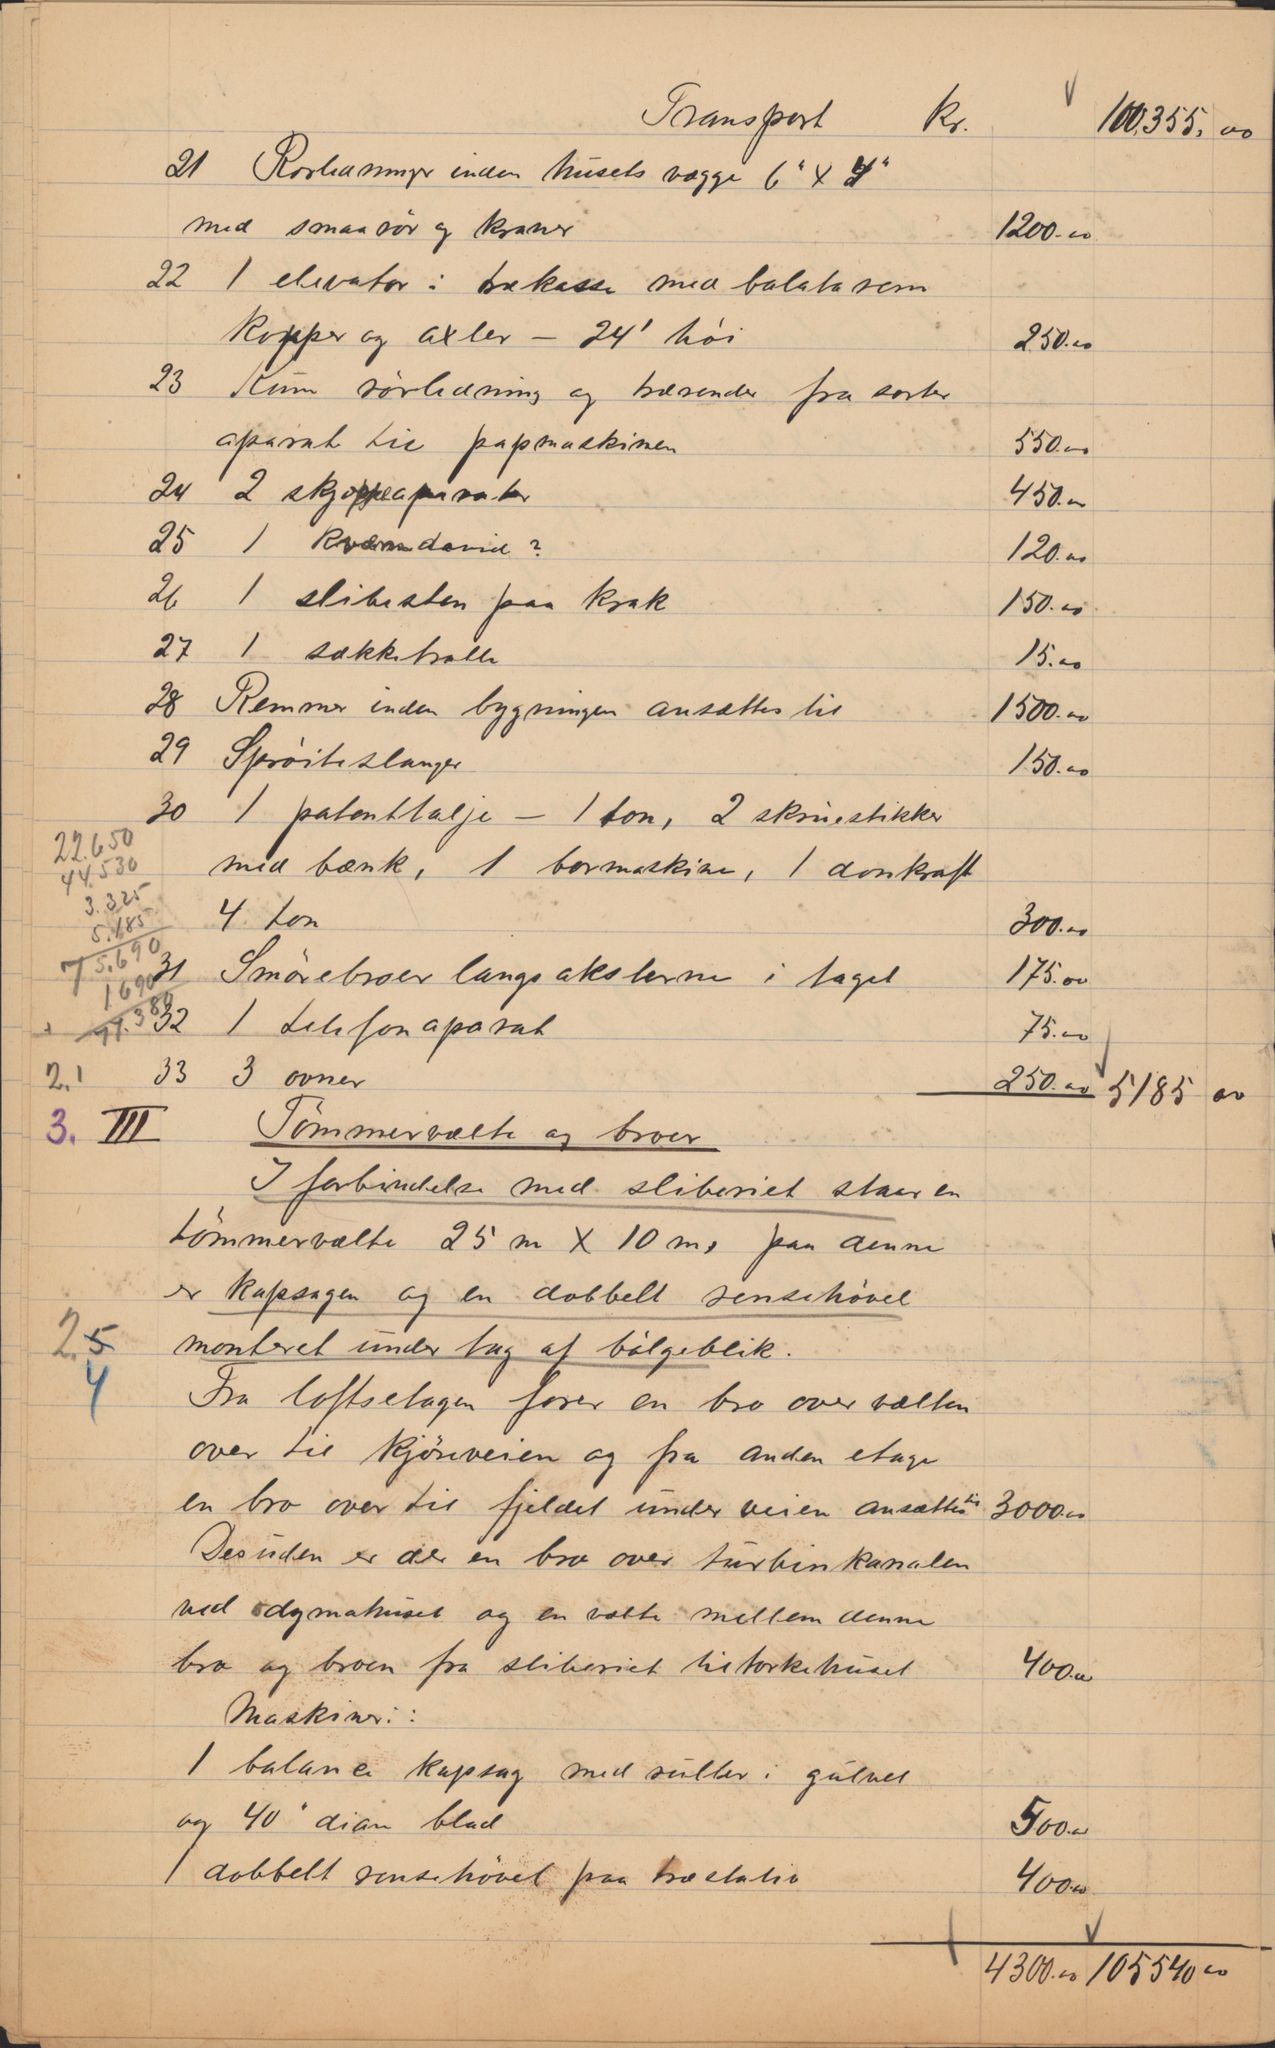 Transport Kr. 100,355.00
21 Rörledninger inden husets vægge 6" x 4"
med smaarör og kraner 1200.00
22 1 elevator i trækasse med balatarem
Kopper og axler – 24' höi 250.00
23 Kum rörledning og trærender fra sorter
aparat til papmaskinen 550.00
24 2 skjöppeaparater 450.00
25 1 Kværndavid? 120.00
26 1 slibesten paa krak 150.00
27 1 sækketralle 15.00
28 Remmer inden bygningen ansættes til 1500.00
29 Spröiteslanger 150.00
30 1 patenttalje – 1 ton, 2 skruestikker
22.650
med bænk, 1 bormaskine, 1 donkraft
44.530
3.325
4 ton 300.00
5.185
75.690
31 Smörebroer langs akslerne i taget 175.00
1690
77.380
32 1 telefonaparat 75.00
2.1 33 3 ovner 250.00 5185 00
3. III Tömmervælte og broer
I forbindelse med sliberiet staar en
tömmervælte 25 m x 10 m, paa denne
er kapsagen og en dobbelt rensehövel
2.5 monteret under tag af bölgeblik.
4
Fra loftsetagen förer en bro over vælten
over til kjöreveien og fra anden etage
en bro over til fjeldet under veien ansættes til 3000.00
Desuden er der en bro over turbinkanalen
ved dynamohuset og en vælte mellem denne
bro og broen fra sliberiet til törkehuset 400.00
Maskineri:
1 balance kapsag med ruller i gulvet
og 40" diam blad 500.00
1 dobbelt rensehövel paa træstativ 400.00
4300.00 105540 00